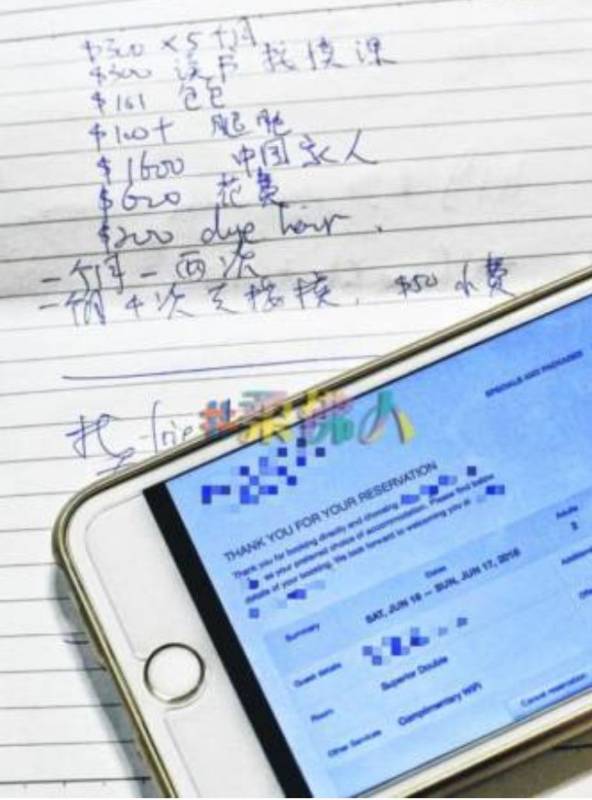 $300 × 5个月
$300 读书 找接课
$101 包包
$100+ 肥肥
$1600 中国家人
$600 花费
$200 dye hair.
一个月一两次
一个月4次 $50 水费
#柔佛人
SPECIALS AND PACKAGES
THANK YOU FOR YOUR RESERVATION
Thank you for booking directly and choosing
as your preferred choice of accommodation. Please find below
details of your booking. We look forward to welcoming you at
Dates
Adults
Summary
SAT, JUN 16 — SUN, JUN 17, 2018
2
Additional
Guest details
Room
Superior Double
Other Services
Complimentary WiFi
Cancel reservation